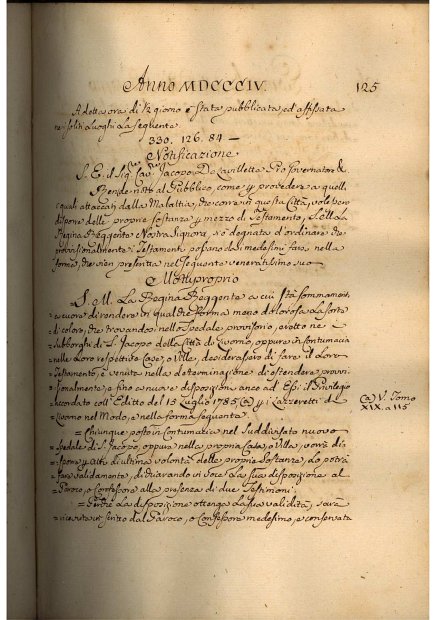 Anno MDCCCIV.
125
A detta ora di 12 giorno è stata pubblicata, ed affissata
ne' soliti Luoghi La seguente
330. 126. 84 —
Notificazione
S. E. il Sig. Cav. Jacopo De Lavilletta Pro Governatore &
Rende noto al Pubblico, come per provedere a quelli,
i quali attaccati dalla Malattia, che corre in questa Città, volessero
disporre delle proprie sostanze per mezzo di Testamento, S. M. La
Regina Reggente e Nostra Signora, si è degnata d'ordinare che
provvisionalmente i Testamenti possano da' medesimi farsi nella
forma, che vien prescritta nel seguente veneratissimo suo
Mottuproprio
S. M. La Regina Reggente a cui stà sommamente
a cuore di rendere in qualche forma meno dolorosa La sorte
di coloro, che trovandosi nello Spedale provvisorio, eretto nel
Subborgo di S. Jacopo della Città di Livorno, oppure in Contumacia
nelle Loro respettive Case, o Ville, desiderassero di fare il Loro
Testamento, è venuta nella determinazione di estendere provvi-
sionalmente e fino a nuove disposizioni anco ad Essi il Privilegio
accordato coll' Editto del 15 Luglio 1785 (a) per i Lazzeretti di
Livorno nel Modo, e nella forma seguente.
(a) V. Tomo
XIX. a 115
= Chiunque posto in Contumacia nel suddivisato nuovo
Spedale di S. Jacopo, oppure nella propria Casa, o Villa, vorrà di-
sporre per atti di ultima volontà delle proprie Sostanze, Lo potrà
fare validamente, dichiarando in voce La sua disposizione al
Paroco, o Confessore alla presenza di due Testimoni.
= Perchè La disposizione ottenga La sua validità, sarà
ricevuta in scritto dal Paroco, o Confessore medesimo, e conservata